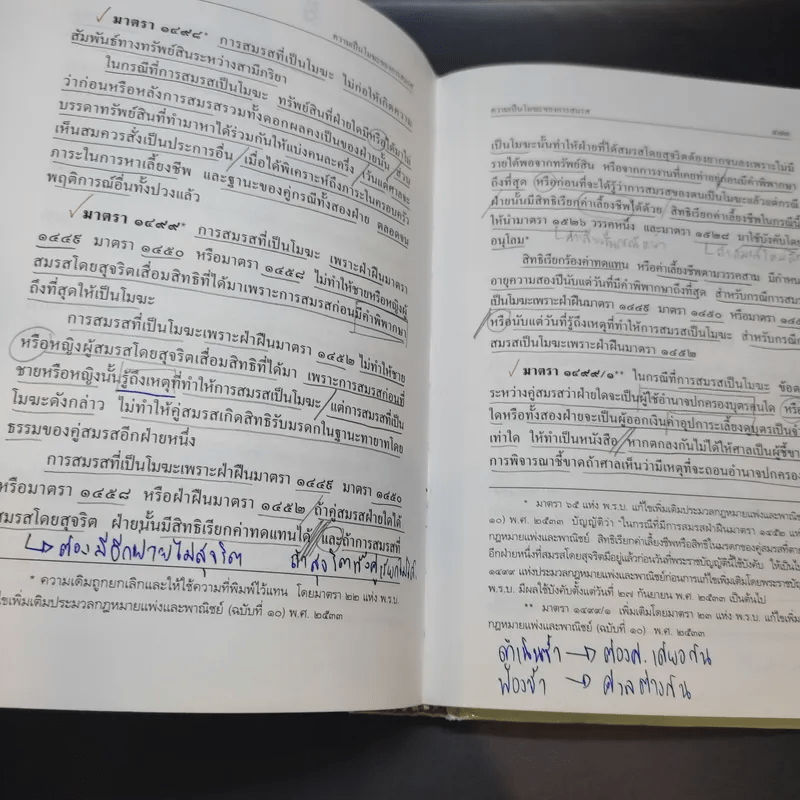 ความเป็นโมฆะของการสมรส
✓ มาตรา ๑๔๙๘* การสมรสที่เป็นโมฆะ ไม่ก่อให้เกิดความ
สัมพันธ์ทางทรัพย์สินระหว่างสามีภริยา
ในกรณีที่การสมรสเป็นโมฆะ ทรัพย์สินที่ฝ่ายใดมีหรือได้มาไม่
ว่าก่อนหรือหลังการสมรสรวมทั้งดอกผลคงเป็นของฝ่ายนั้น ส่วน
บรรดาทรัพย์สินที่ทำมาหาได้ร่วมกันให้แบ่งคนละครึ่ง เว้นแต่ศาลจะ
เห็นสมควรสั่งเป็นประการอื่น เมื่อได้พิเคราะห์ถึงภาระในครอบครัว
ภาระในการหาเลี้ยงชีพ และฐานะของคู่กรณีทั้งสองฝ่าย ตลอดจน
พฤติการณ์อื่นทั้งปวงแล้ว
✓ มาตรา ๑๔๙๙* การสมรสที่เป็นโมฆะ เพราะฝ่าฝืนมาตรา
๑๔๔๙ มาตรา ๑๔๕๐ หรือมาตรา ๑๔๕๘ ไม่ทำให้ชายหรือหญิงผู้
สมรสโดยสุจริตเสื่อมสิทธิที่ได้มาเพราะการสมรสก่อนมีคำพิพากษา
ถึงที่สุดให้เป็นโมฆะ
การสมรสที่เป็นโมฆะเพราะฝ่าฝืนมาตรา ๑๔๕๒ ไม่ทำให้ชาย
หรือหญิงผู้สมรสโดยสุจริตเสื่อมสิทธิที่ได้มา เพราะการสมรสก่อนที่
ชายหรือหญิงนั้นรู้ถึงเหตุที่ทำให้การสมรสเป็นโมฆะ แต่การสมรสที่เป็น
โมฆะดังกล่าว ไม่ทำให้คู่สมรสเกิดสิทธิรับมรดกในฐานะทายาทโดย
ธรรมของคู่สมรสอีกฝ่ายหนึ่ง
การสมรสที่เป็นโมฆะเพราะฝ่าฝืนมาตรา ๑๔๔๙ มาตรา ๑๔๕๐
หรือมาตรา ๑๔๕๘ หรือฝ่าฝืนมาตรา ๑๔๕๒ ถ้าคู่สมรสฝ่ายใดได้
สมรสโดยสุจริต ฝ่ายนั้นมีสิทธิเรียกค่าทดแทนได้ และถ้าการสมรสที่
ต้องมีอีกฝ่ายไม่สุจริต ถ้าสุจริตทั้งคู่
* ความเดิมถูกยกเลิกและให้ใช้ความที่พิมพ์ไว้แทน โดยมาตรา ๒๒ แห่ง พ.ร.บ.
แก้ไขเพิ่มเติมประมวลกฎหมายแพ่งและพาณิชย์ (ฉบับที่ ๑๐) พ.ศ. ๒๕๓๓
ความเป็นโมฆะของการสมรส
เป็นโมฆะนั้นทำให้ฝ่ายที่ได้สมรสโดยสุจริตต้องยากจนลงเพราะไม่มี
รายได้พอจากทรัพย์สิน หรือจากการงานที่เคยทำอยู่ก่อนมีคำพิพากษา
ถึงที่สุด หรือก่อนที่จะได้รู้ว่าการสมรสของตนเป็นโมฆะแล้วแต่กรณี
ฝ่ายนั้นมีสิทธิเรียกค่าเลี้ยงชีพได้ด้วย สิทธิเรียกค่าเลี้ยงชีพในกรณีนี้
ให้นำมาตรา ๑๕๒๖ วรรคหนึ่ง และมาตรา ๑๕๒๘ มาใช้บังคับโดย
อนุโลม*
สิทธิเรียกร้องค่าทดแทน หรือค่าเลี้ยงชีพตามวรรคสาม มีกำหนด
อายุความสองปีนับแต่วันที่มีคำพิพากษาถึงที่สุด สำหรับกรณีการสมรส
เป็นโมฆะเพราะฝ่าฝืนมาตรา ๑๔๔๙ มาตรา ๑๔๕๐ หรือมาตรา ๑๔๕๘
หรือนับแต่วันที่รู้ถึงเหตุที่ทำให้การสมรสเป็นโมฆะ สำหรับกรณี
สมรสเป็นโมฆะเพราะฝ่าฝืนมาตรา ๑๔๕๒
✓ มาตรา ๑๔๙๙/๑** ในกรณีที่การสมรสเป็นโมฆะ ข้อต
ระหว่างคู่สมรสว่าฝ่ายใดจะเป็นผู้ใช้อำนาจปกครองบุตรคนใด หรือ
ใดหรือทั้งสองฝ่ายจะเป็นผู้ออกเงินค่าอุปการะเลี้ยงดูบุตรเป็นจำ
เท่าใด ให้ทำเป็นหนังสือ หากตกลงกันไม่ได้ให้ศาลเป็นผู้ชี้ขา
การพิจารณาชี้ขาดถ้าศาลเห็นว่ามีเหตุที่จะถอนอำนาจปกครอง
* มาตรา ๖๕ แห่ง พ.ร.บ. แก้ไขเพิ่มเติมประมวลกฎหมายแพ่งและพาณิชย์
๑๐) พ.ศ. ๒๕๓๓ บัญญัติว่า "ในกรณีที่มีการสมรสฝ่าฝืนมาตรา ๑๔๕๒ แห่
กฎหมายแพ่งและพาณิชย์ สิทธิเรียกค่าเลี้ยงชีพหรือสิทธิในมรดกของคู่สมรสที่ตาย
อีกฝ่ายหนึ่งที่สมรสโดยสุจริตมีอยู่แล้วก่อนวันที่พระราชบัญญัตินี้ใช้บังคับ ให้เป็นไป
๑๔๙๙ แห่งประมวลกฎหมายแพ่งและพาณิชย์ก่อนการแก้ไขเพิ่มเติมโดยพระราชบั
พ.ร.บ. มีผลใช้บังคับตั้งแต่วันที่ ๒๗ กันยายน พ.ศ. ๒๕๓๓ เป็นต้นไป
** มาตรา ๑๔๙๙/๑ เพิ่มเติมโดยมาตรา ๒๓ แห่ง พ.ร.บ. แก้ไขเพิ่
กฎหมายแพ่งและพาณิชย์ (ฉบับที่ ๑๐) พ.ศ. ๒๕๓๓
ดำเนินซ้ำ → ต้องศ. เดียวกัน
ฟ้องซ้ำ → ศาลต่างกัน